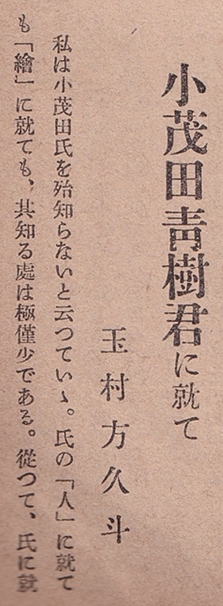 小茂田靑樹君に就て
玉村方久斗
私は小茂田氏を殆知らないと云つていゝ。氏の「人」に就て
も「繪」に就ても、其知る處は極僅少である。從つて、氏に就